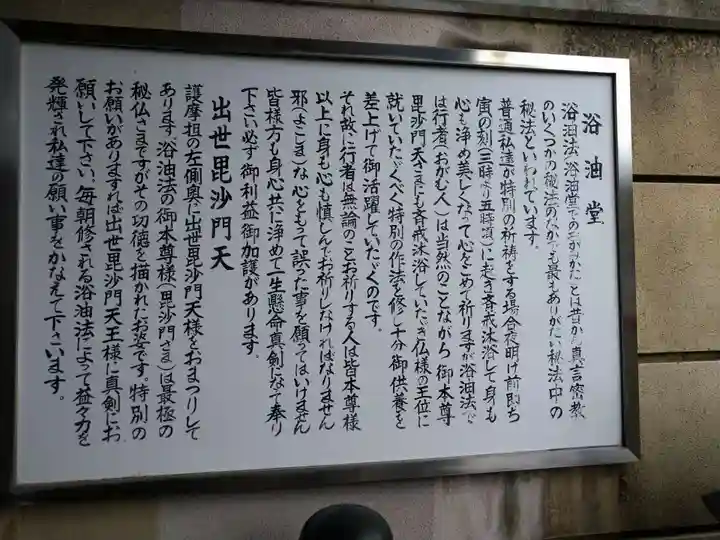 浴油堂
浴油法(浴油堂でのおがみかた)とは昔から真言密教
のいくつかの秘法のなかでも最もありがたい秘法中の
秘法といわれています。
普通私達が特別の祈祷をする場合夜明け前即ち
寅の刻(三時より五時頃)に起き斉戒沐浴して身も
心も浄め美しくなって心をこめて祈りますが浴油法で
は行者(おがむ人)は当然のことながら御本尊
毘沙門天さまにも斉戒沐浴していただき仏様の王位に
就いていただくべく特別の作法を修し十分御供養を
差上げて御活躍していただくのです。
それ故に行者は無論のことお祈りする人は皆本尊様
以上に身も心も慎しんでお祈りしなければなりません
邪(よこしま)な心をもって誤った事を願ってはいけません
皆様方も身心共に浄めて一生懸命真剣になって奉り
下さい必ず御利益御加護があります。
出世毘沙門天
護摩担の左側奥に出世毘沙門天様をおまつりして
あります(浴油法の御本尊様(毘沙門さま)は最極の
秘仏さまですがその功徳を描かれたお姿です。特別の
お願いがありますれば出世毘沙門天王様に真剣にお
願いして下さい、毎朝修される浴油法によって益々力を
発輝され私達の願い事をかなえて下さいます。